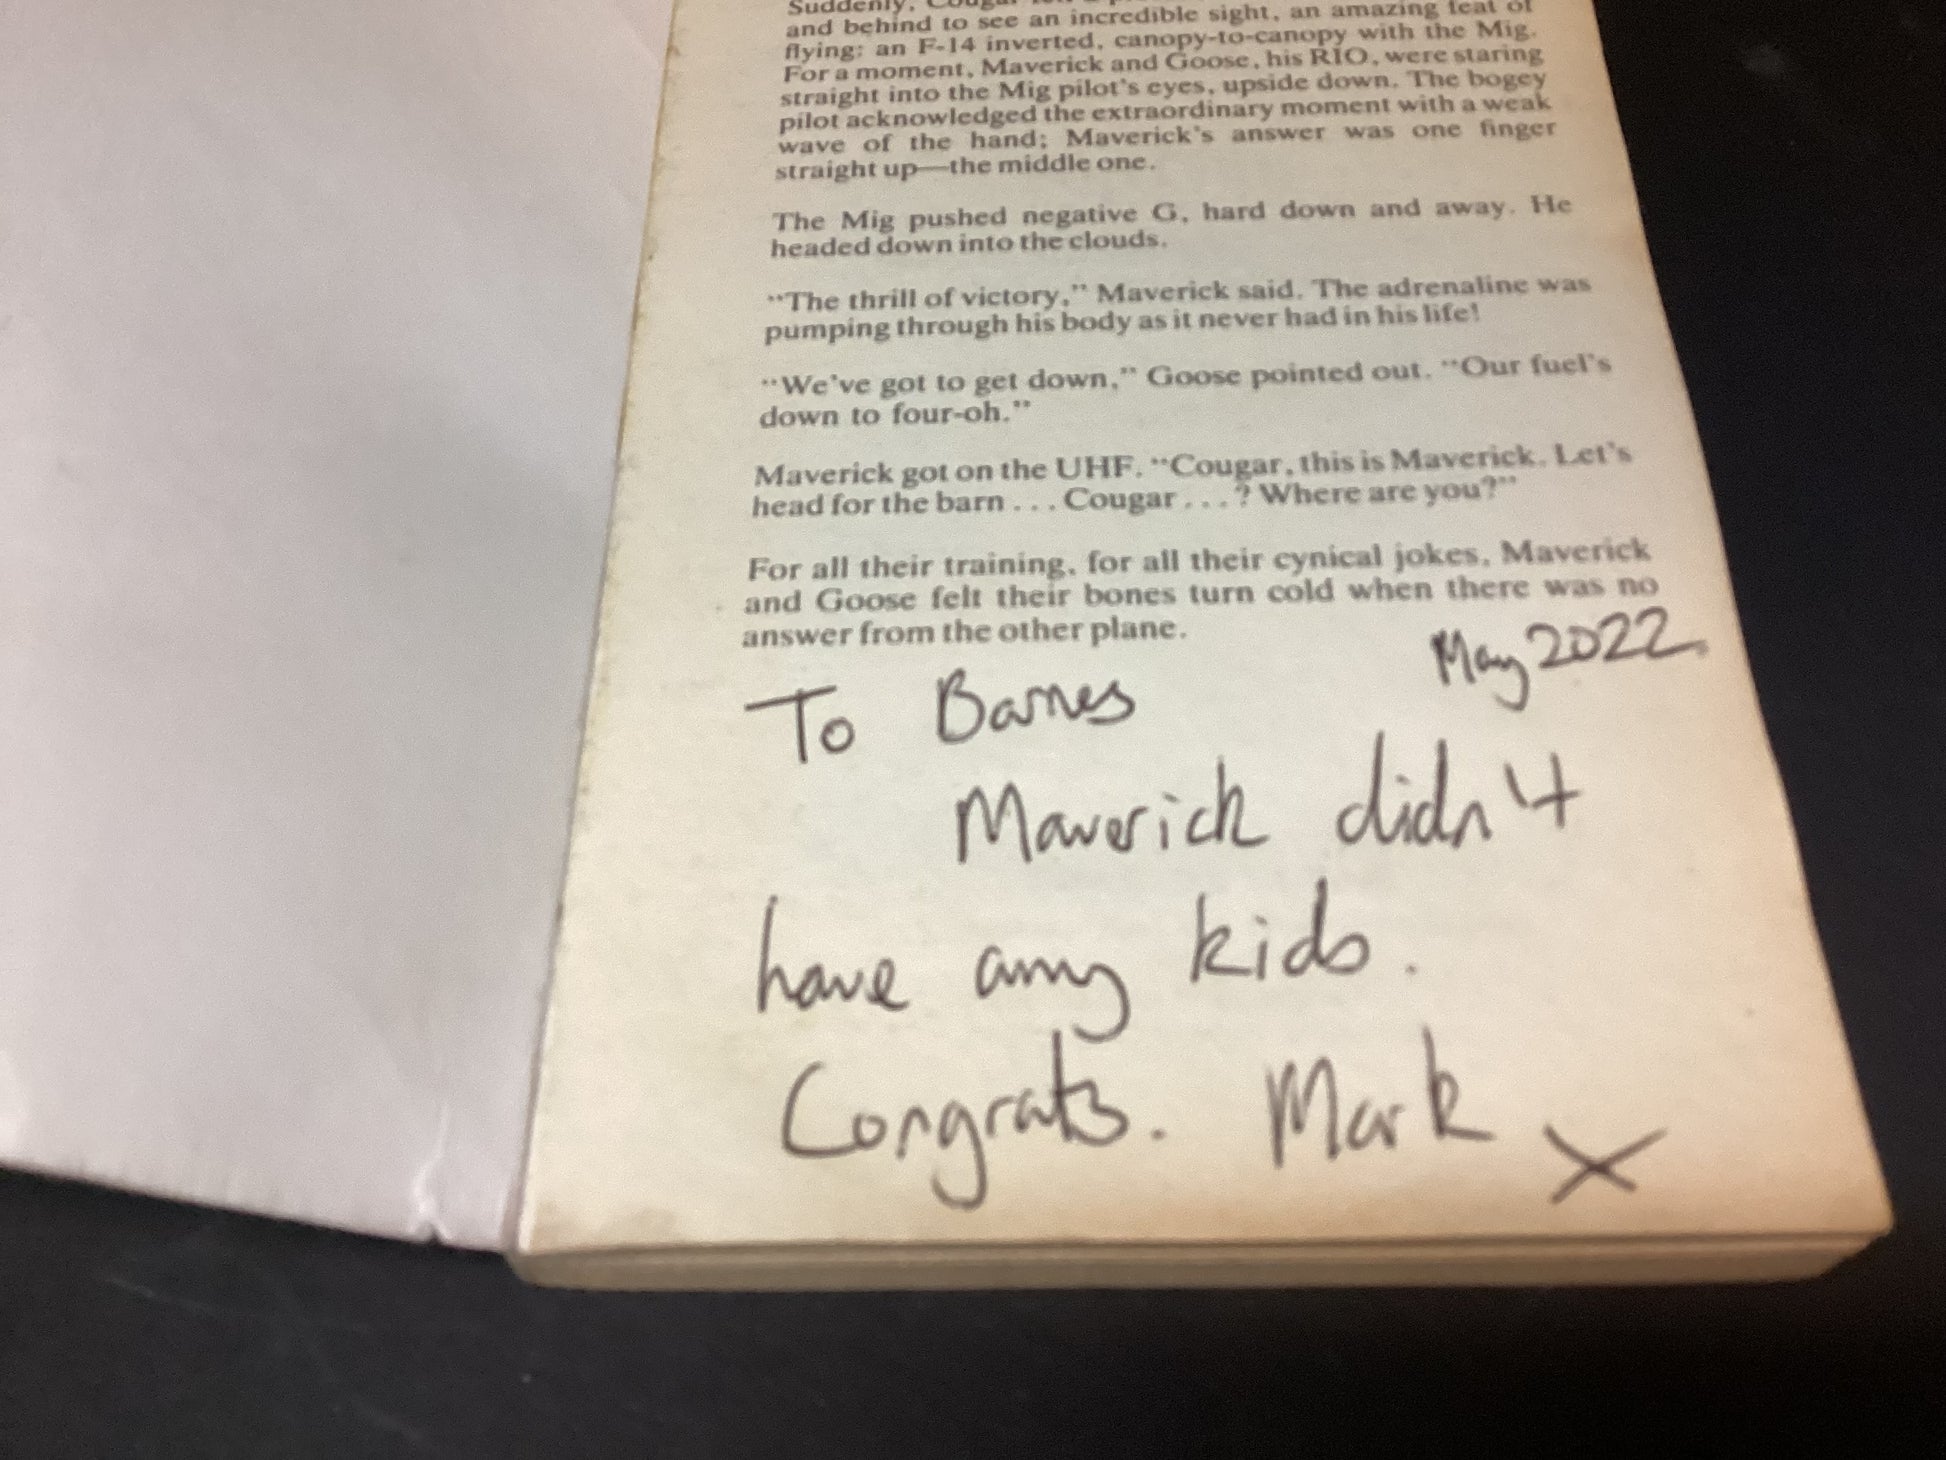 Suddenly, Cougar felt a
and behind to see an incredible sight, an amazing feat of
flying: an F-14 inverted, canopy-to-canopy with the Mig.
For a moment, Maverick and Goose, his RIO, were staring
straight into the Mig pilot's eyes, upside down. The bogey
pilot acknowledged the extraordinary moment with a weak
wave of the hand; Maverick's answer was one finger
straight up—the middle one.
The Mig pushed negative G, hard down and away. He
headed down into the clouds.
"The thrill of victory," Maverick said. The adrenaline was
pumping through his body as it never had in his life!
"We've got to get down," Goose pointed out. "Our fuel's
down to four-oh."
Maverick got on the UHF. "Cougar, this is Maverick. Let's
head for the barn . . . Cougar . . . ? Where are you?"
For all their training, for all their cynical jokes, Maverick
and Goose felt their bones turn cold when there was no
answer from the other plane.
May 2022
To Barnes
Maverick didn't
have any kids.
Congrats. Mark X